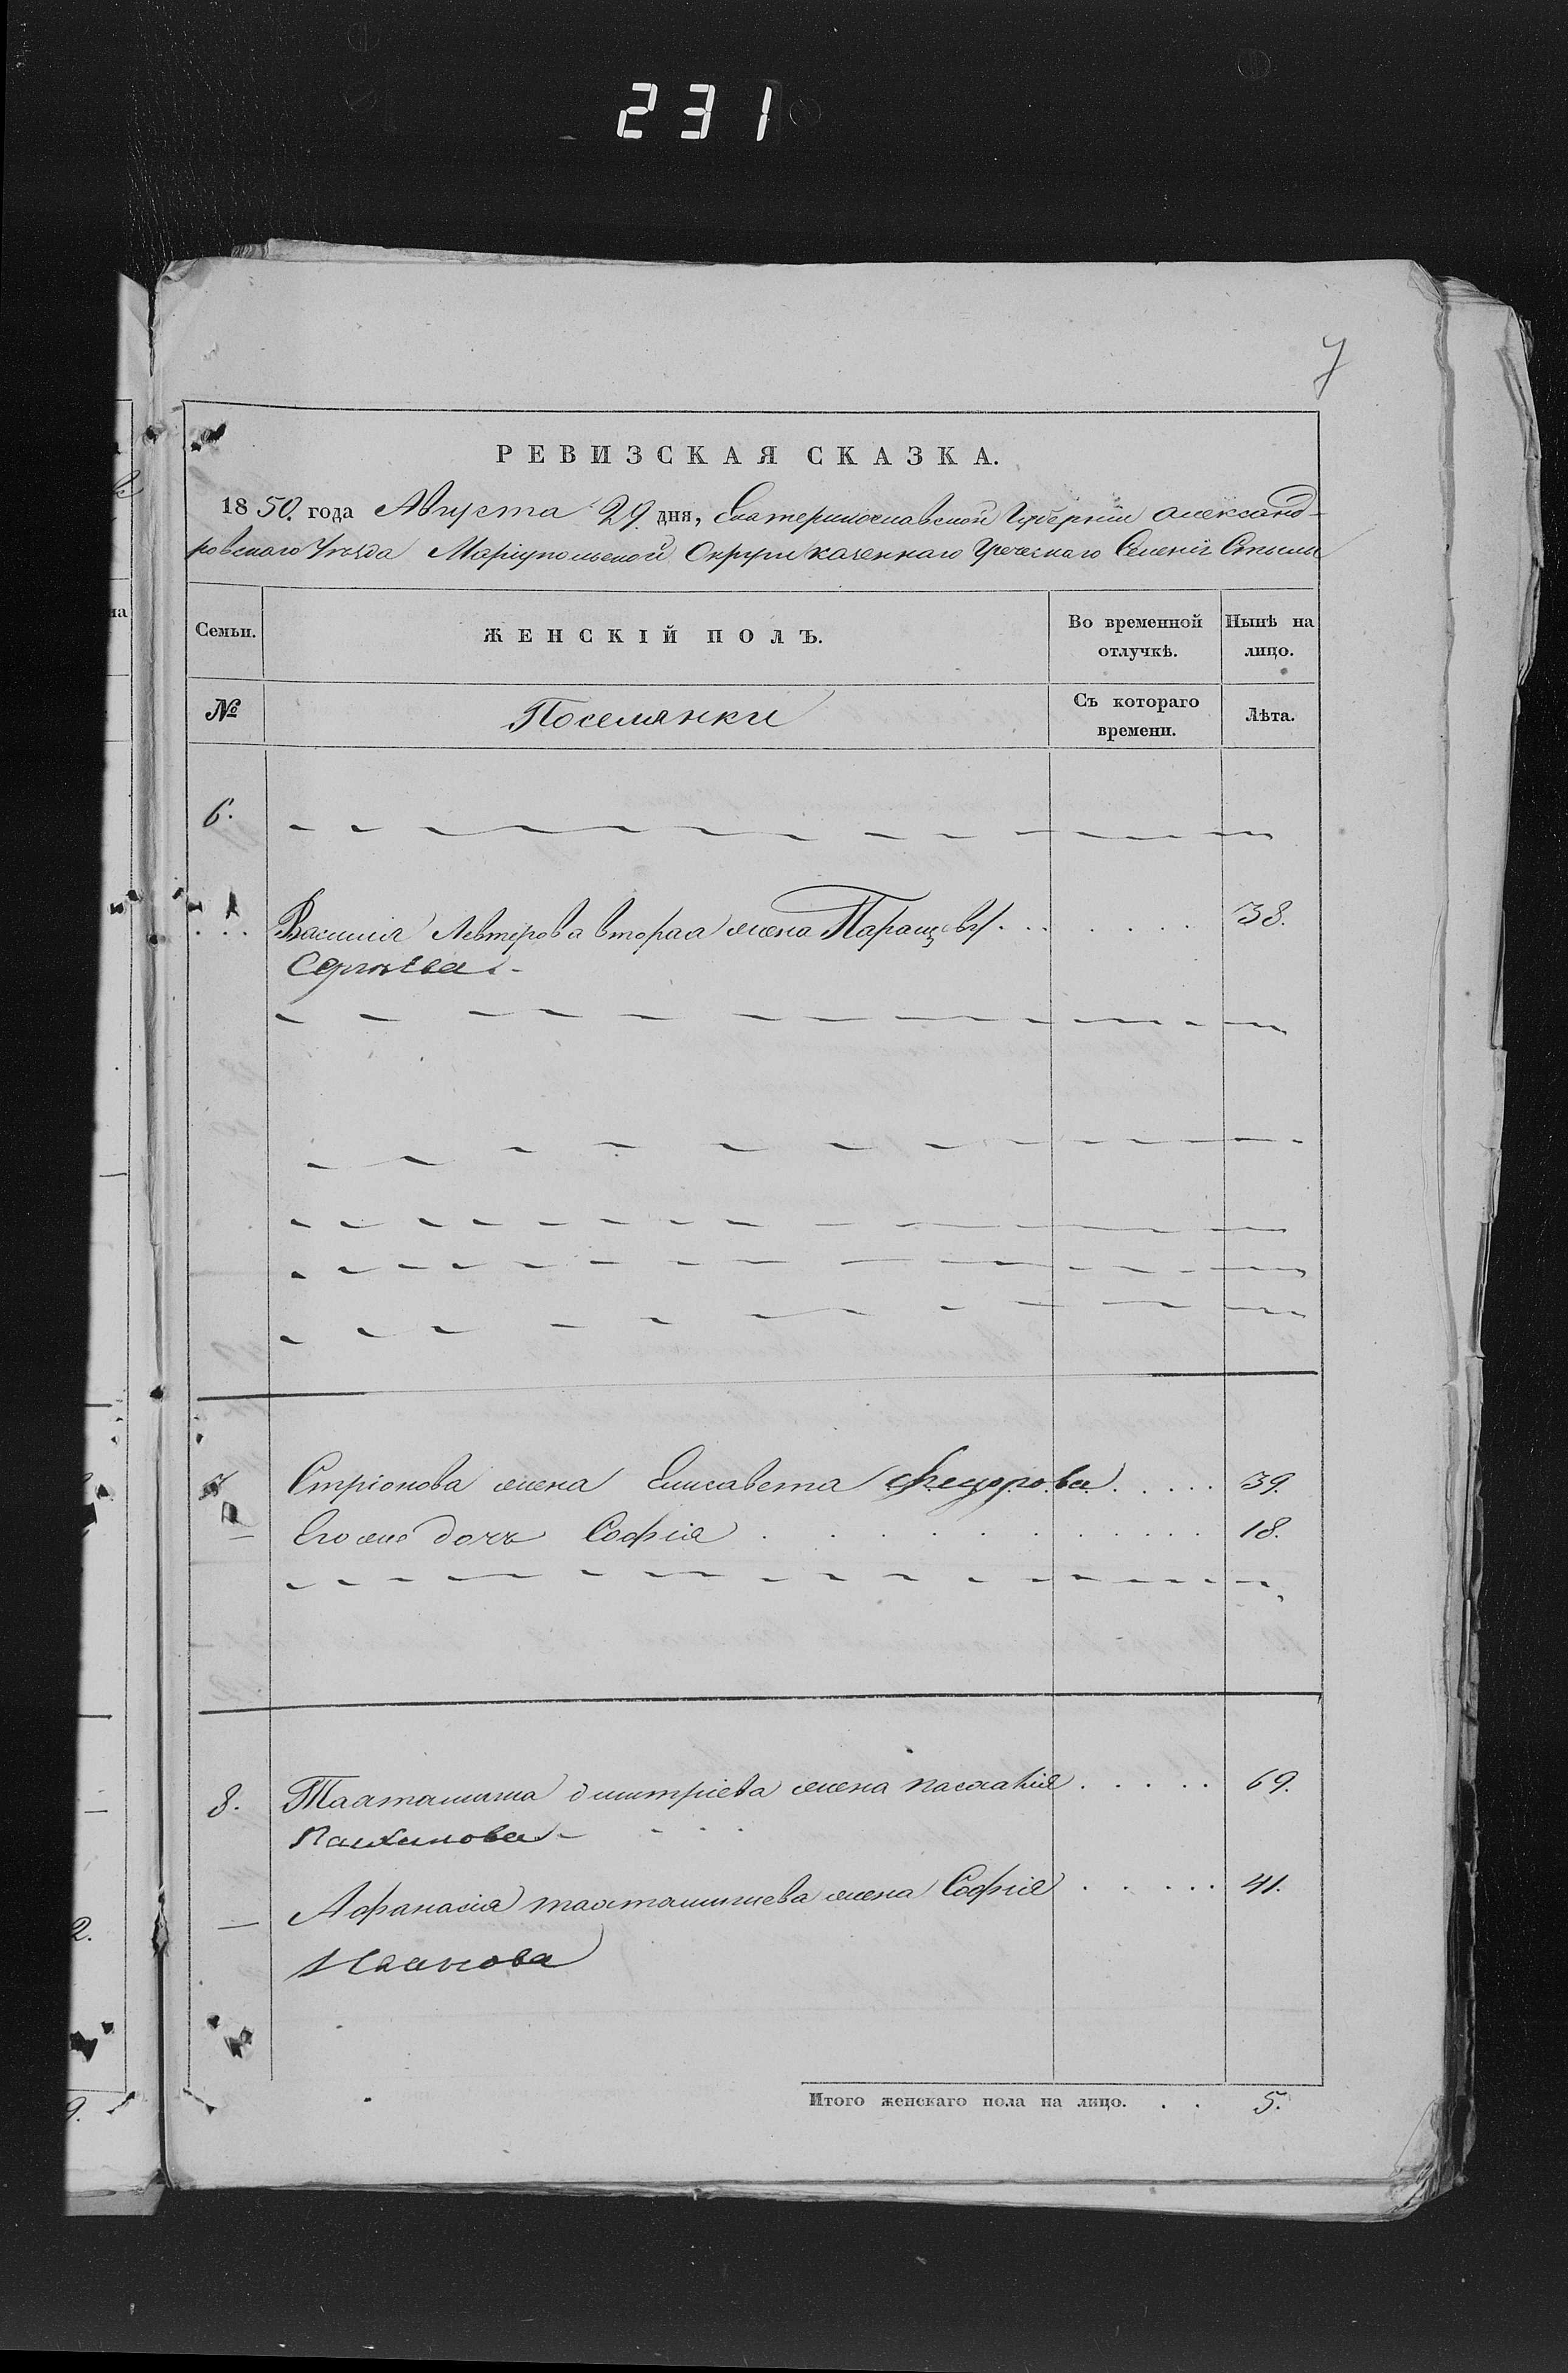 231
7
РЕВИЗСКАЯ СКАЗКА.
1850. года Августа 29. дня, Екатеринославской Губерніи Александ-
ровскаго Уѣзда Маріупольской Округи казеннаго Греческаго Селенія Стылы
Семьи. ЖЕНСКІЙ ПОЛЪ. Во временной отлучкѣ. Нынѣ на лицо.
№ Поселянки Съ котораго времени. Лѣта.
6.
Василія Левтерова вторая жена Паращевы 38.
Сергѣева
7 Стріонова жена Елисавета Федорова 39.
— Его же дочь Софія 18.
8. Дмитріева жена 69.
— Афанасія жена Софія 41.
Иванова
Итого женскаго пола на лицо. 5.
2.
9.